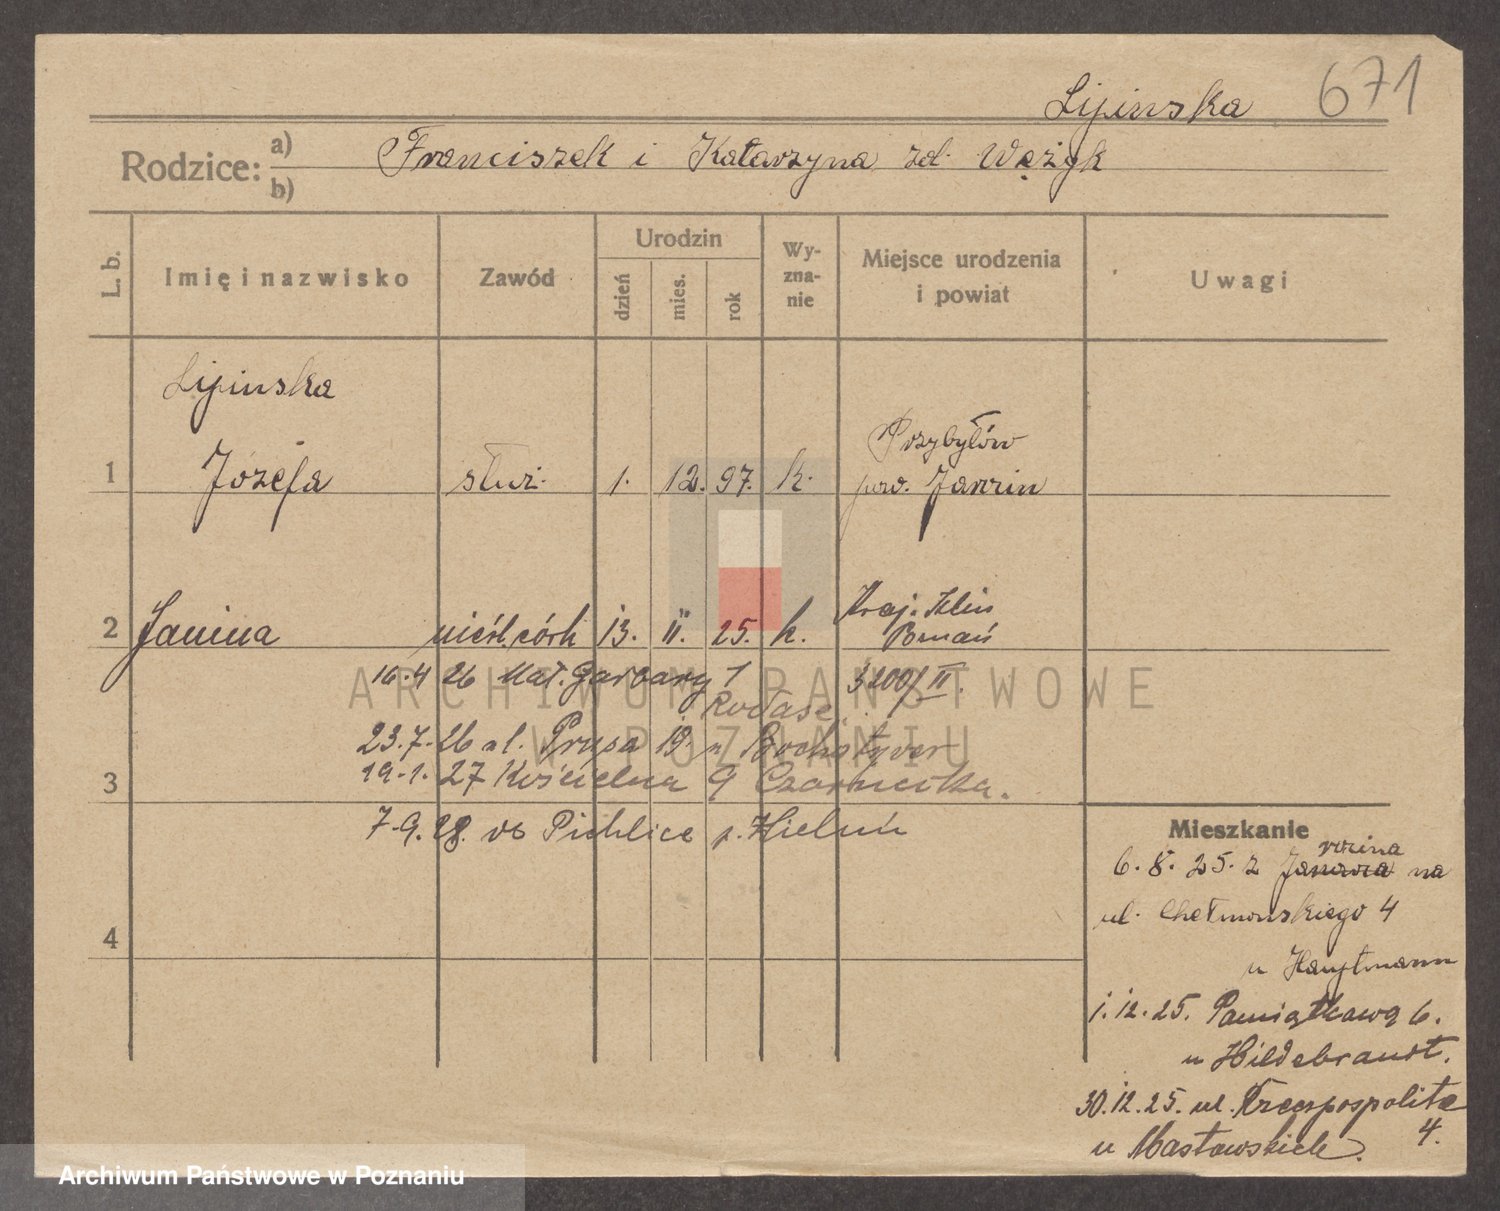 Lipinska 671
Rodzice: a) Franciszek i Katarzyna zd. Wężyk
b)
L. b. Imię i nazwisko Zawód Urodzin dzień mies. rok Wy-zna-nie Miejsce urodzenia i powiat Uwagi
Lipinska
1 Józefa służ. 1. 12. 97. k. Przybyłów
pow. Jarocin
2 Janina nieśl. córk 13. II. 25. k. Kraj. Klin
Poznań
16.4 26 Mał. Garbary 1 3200/II.
23.7.26 ul. Prusa 19. u
3 19.1.27 Kościelna 9 Czarnecka.
7.9.28. do Pichlice p. Wieluń
4
Mieszkanie
6.8.25. z na
ul. Chełmonskiego 4
u Hauptmann
1.12.25. Pamiątkowa 6.
u Hildebrandt.
30.12.25. ul. Rzeczpospolita
4.
u Masłowskich.
ARCHIWUM PAŃSTWOWE
W POZNANIU
Archiwum Państwowe w Poznaniu